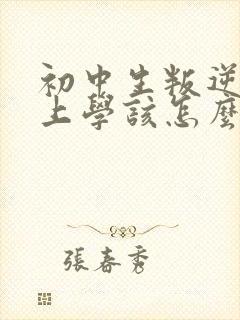 初中生叛逆
上學該怎麼
張春秀